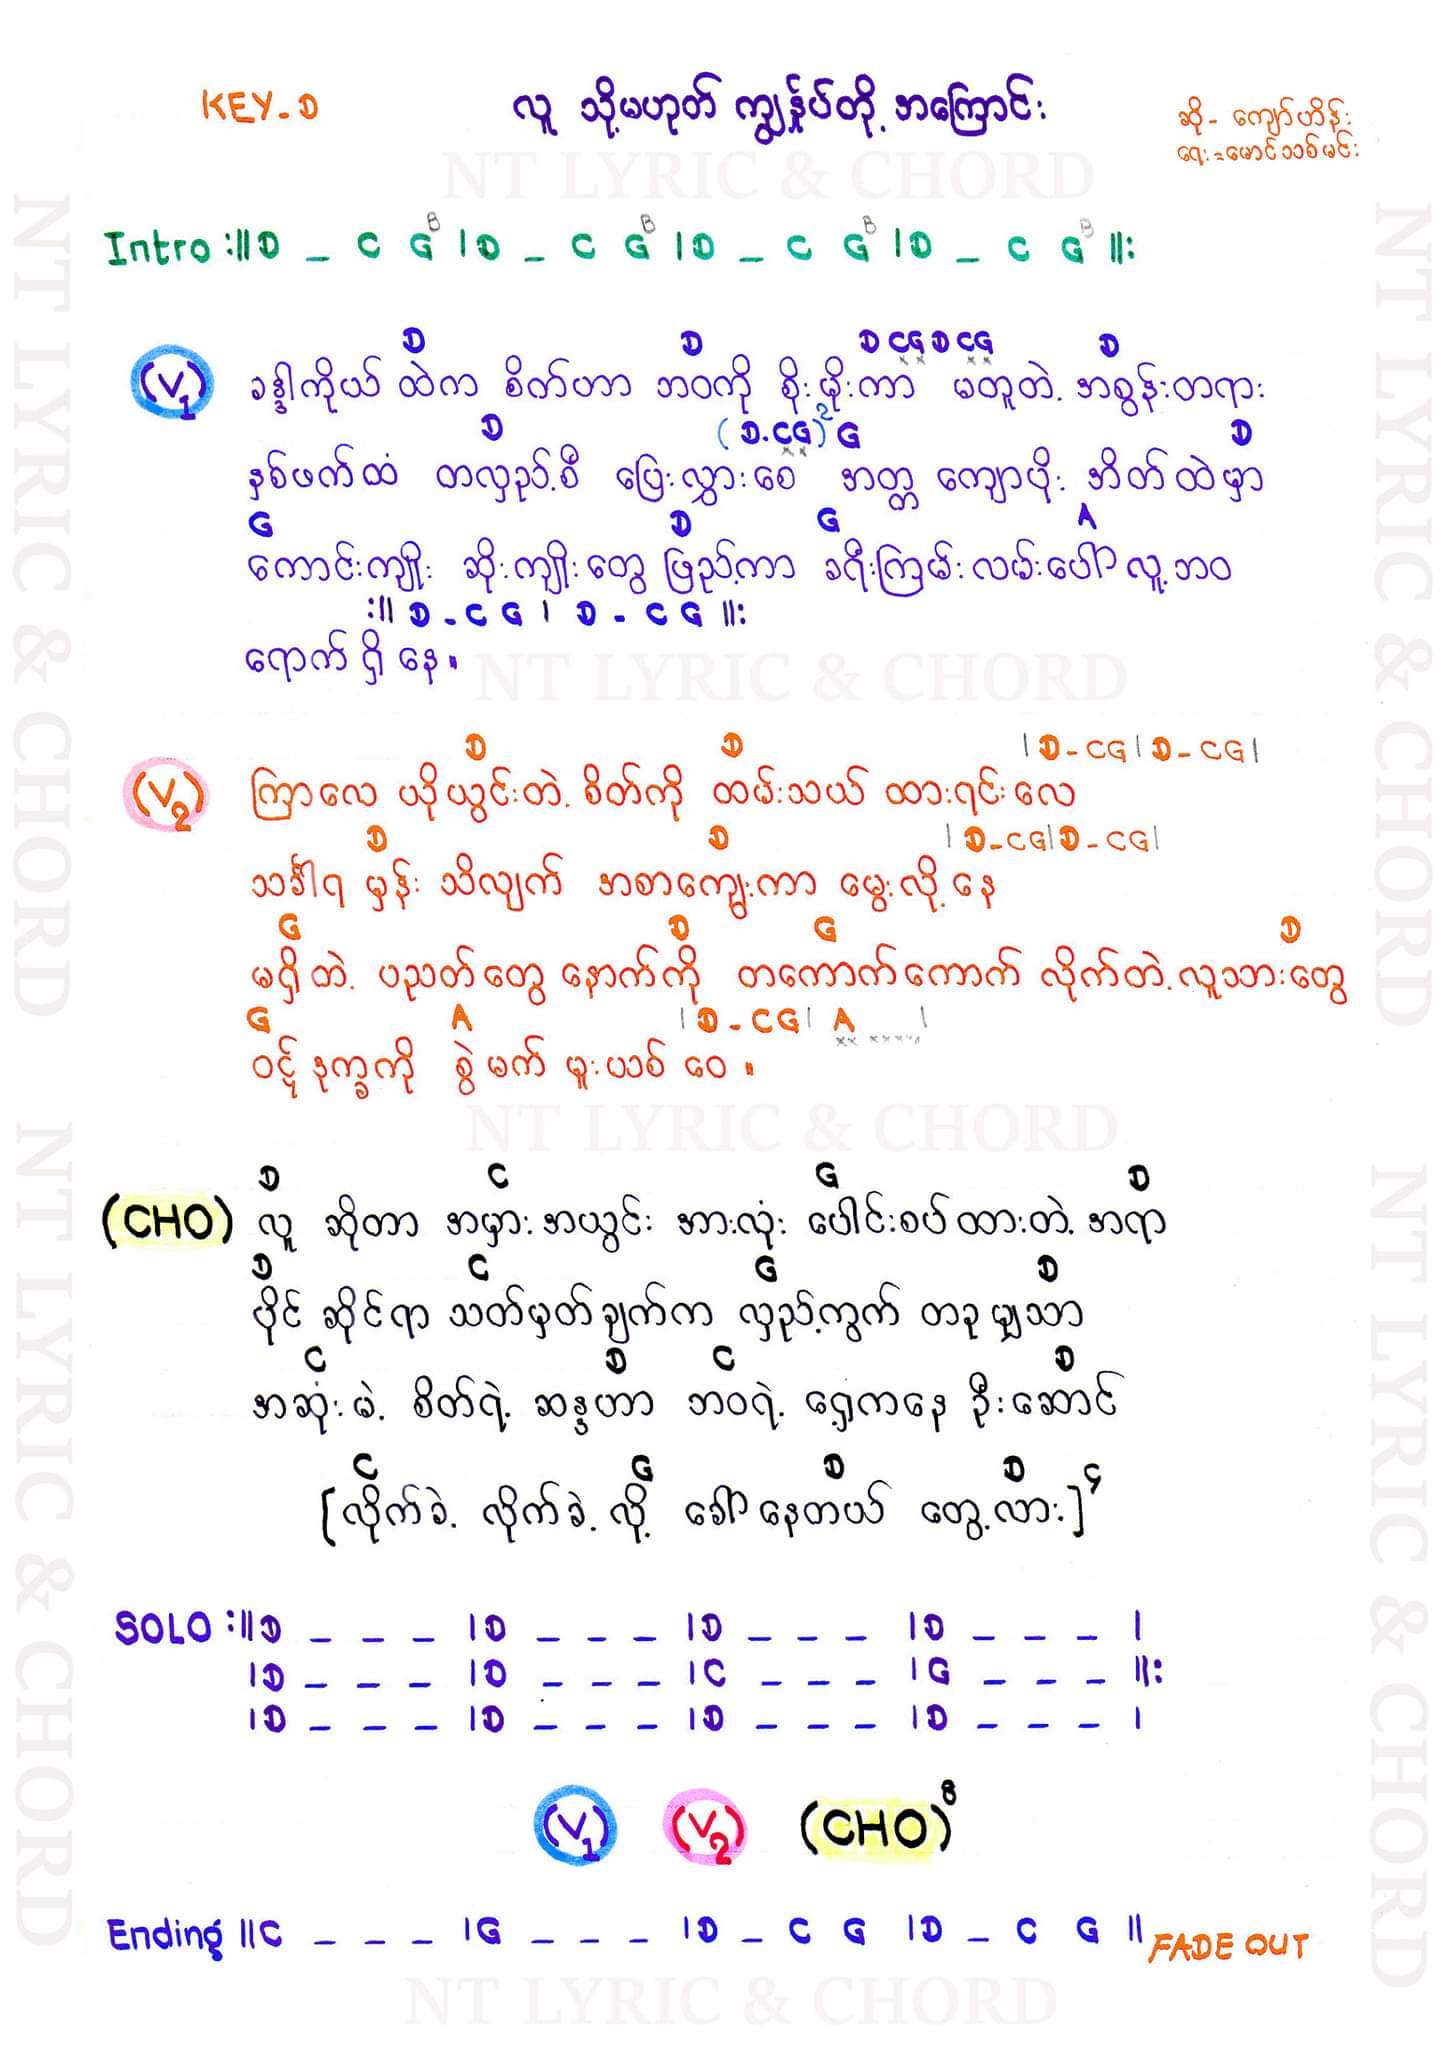 KEY-D
လူ သို့မဟုတ် ကျွန်ုပ်တို့ အကြောင်း
ဆို - ကျော်ဟိန်း
ရေး = မောင်သစ်မင်း
NT LYRIC & CHORD
Intro :||D _ C G^B |D _ C G^B |D _ C G^B |D _ C G^B ||:
D D D CG D CG D
(V1) ခန္ဓါကိုယ် ထဲက စိတ်ဟာ ဘဝကို စိုးမိုးကာ မတူတဲ့ အစွန်းတရား
D (D.CG)² G D
နှစ်ဖက်ထံ တလှည့်စီ ပြေးလွှားစေ အတ္တ ကျောပိုး အိတ်ထဲမှာ
G D G A
ကောင်းကျိုး ဆိုးကျိုးတွေ ဖြည့်ကာ ခရီးကြမ်းလမ်းပေါ် လူ့ဘဝ
:|| D - C G | D - C G ||:
ရောက်ရှိနေ။
NT LYRIC & CHORD
D D | D - CG | D - CG |
(V2) ကြာလေ ယိုယွင်းတဲ့ စိတ်ကို ထမ်းသယ် ထားရင်းလေ
D D | D - CG | D - CG |
သင်္ခါရ မှန်း သိလျက် အစာကျွေးကာ မွေးလို့နေ
G D G D
မရှိတဲ့ ပညတ်တွေ နောက်ကို တကောက်ကောက် လိုက်တဲ့ လူသားတွေ
G A | D - CG | A |
ဝဋ် ဒုက္ခကို စွဲမက် မူးယစ်ဝေ။
NT LYRIC & CHORD
D C G D
(CHO) လူ ဆိုတာ အမှား အယွင်း အားလုံး ပေါင်းစပ်ထားတဲ့ အရာ
D C G D
ပိုင် ဆိုင်ရာ သတ်မှတ်ချက်က လှည့်ကွက် တခုမျှသာ
C D C D
အဆုံးမဲ့ စိတ်ရဲ့ ဆန္ဒဟာ ဘဝရဲ့ ရှေ့ကနေ ဦးဆောင်
C G D D
[လိုက်ခဲ့ လိုက်ခဲ့ လို့ ခေါ်နေတယ် တွေ့လား]⁴
SOLO :||D _ _ _ |D _ _ _ |D _ _ _ |D _ _ _ |
|D _ _ _ |D _ _ _ |C _ _ _ |G _ _ _ ||:
|D _ _ _ |D _ _ _ |D _ _ _ |D _ _ _ |
(V1) (V2) (CHO)⁸
Ending ||C _ _ _ |G _ _ _ |D _ C G |D _ C G || FADE OUT
NT LYRIC & CHORD
NT LYRIC & CHORD
NT LYRIC & CHORD
NT LYRIC & CHORD
NT LYRIC & CHORD